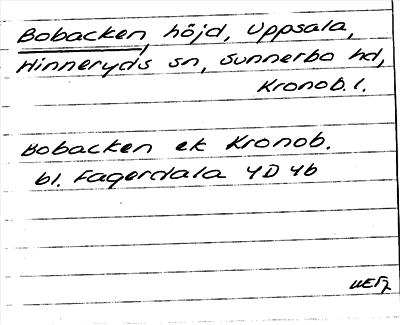 Bobacken, höjd, Uppsala,
Hinneryds sn, Sunnerbo hd,
Kronob. l.
Bobacken ek Kronob.
bl. Fagerdala 4D 4b